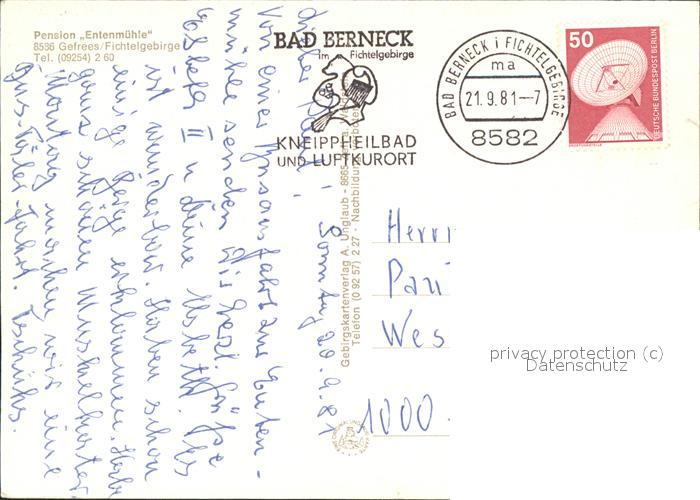 Pension „Entenmühle“
8586 Gefrees/Fichtelgebirge
Tel. (09254) 2 60
BAD BERNECK
im Fichtelgebirge
KNEIPPHEILBAD
UND LUFTKURORT
BAD BERNECK i FICHTELGEBIRGE
ma
21.9.81--7
8582
50
DEUTSCHE BUNDESPOST BERLIN
Gebirgskartenverlag A. Unglaub - 8665
Telefon (0 92 57) 2 27 - Nachbildung
Sonntag 20.9.81
Von einer Omnibusfahrt zur Enten-
mühle senden Dir herzl. Grüße
II u Deine Elsbeth. Es
ist wunderbar. Haben schon
einige Berge erklommen. Habe
ganz schönen Muskelkater
Montag machen wir eine
Fahrt. Tschüß.
Herr
Paul
Wes
1000
privacy protection (c)
Datenschutz